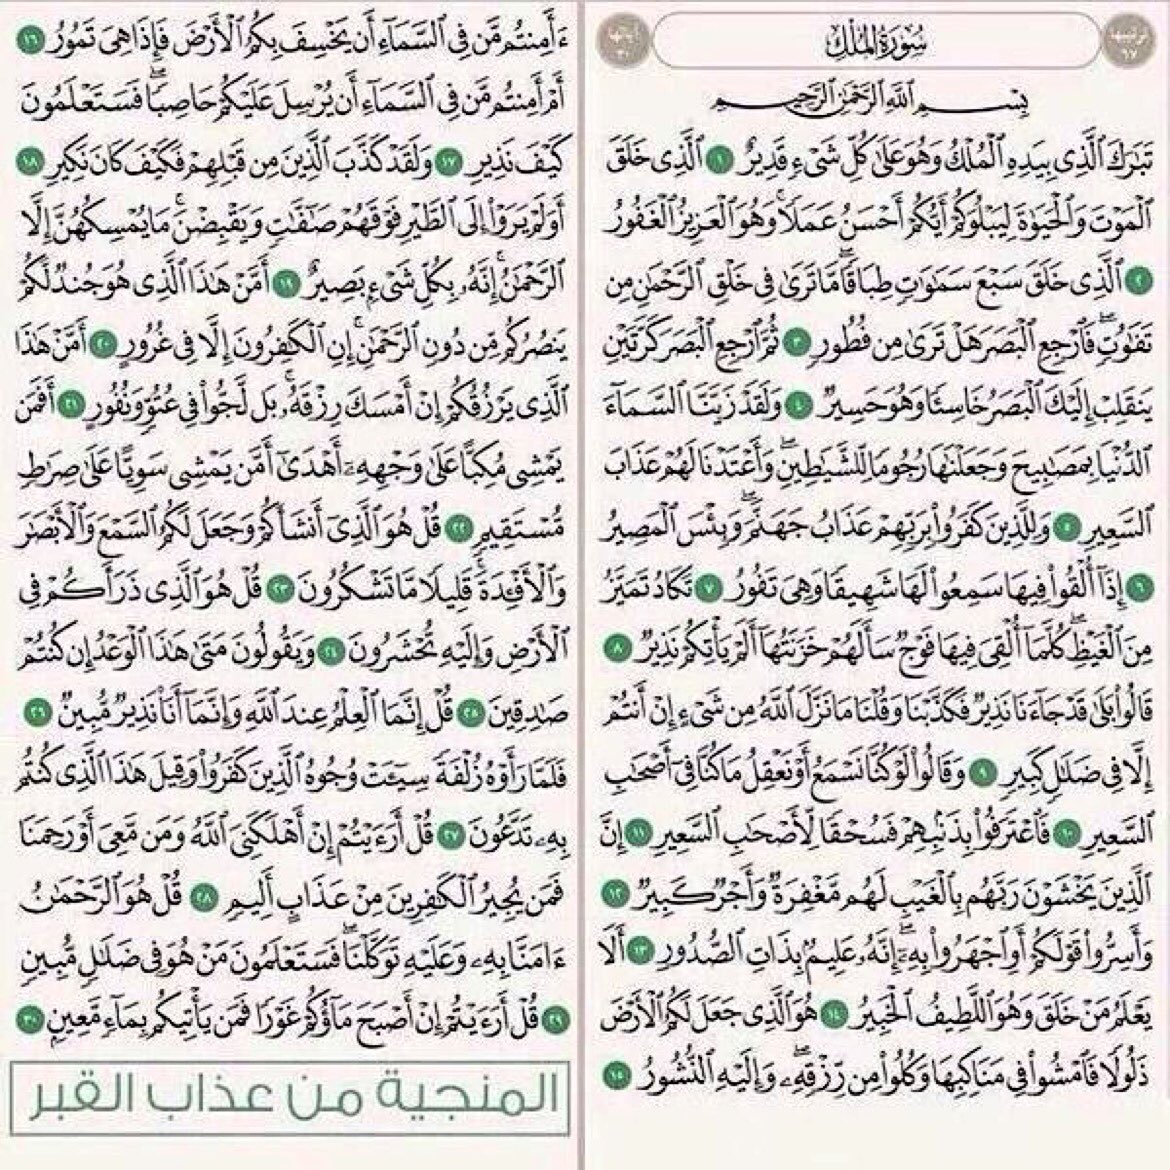 ترتيبها ٦٧
سُورَةُ المُلْكِ
آياتها ٣٠
بِسْمِ اللَّهِ الرَّحْمَٰنِ الرَّحِيمِ
تَبَٰرَكَ ٱلَّذِى بِيَدِهِ ٱلْمُلْكُ وَهُوَ عَلَىٰ كُلِّ شَىْءٍ قَدِيرٌ ١ ٱلَّذِى خَلَقَ
ٱلْمَوْتَ وَٱلْحَيَوٰةَ لِيَبْلُوَكُمْ أَيُّكُمْ أَحْسَنُ عَمَلًا ۚ وَهُوَ ٱلْعَزِيزُ ٱلْغَفُورُ
٢ ٱلَّذِى خَلَقَ سَبْعَ سَمَٰوَٰتٍ طِبَاقًا ۖ مَّا تَرَىٰ فِى خَلْقِ ٱلرَّحْمَٰنِ مِن
تَفَٰوُتٍ ۖ فَٱرْجِعِ ٱلْبَصَرَ هَلْ تَرَىٰ مِن فُطُورٍ ٣ ثُمَّ ٱرْجِعِ ٱلْبَصَرَ كَرَّتَيْنِ
يَنقَلِبْ إِلَيْكَ ٱلْبَصَرُ خَاسِئًا وَهُوَ حَسِيرٌ ٤ وَلَقَدْ زَيَّنَّا ٱلسَّمَآءَ
ٱلدُّنْيَا بِمَصَٰبِيحَ وَجَعَلْنَٰهَا رُجُومًا لِّلشَّيَٰطِينِ ۖ وَأَعْتَدْنَا لَهُمْ عَذَابَ
ٱلسَّعِيرِ ٥ وَلِلَّذِينَ كَفَرُوا۟ بِرَبِّهِمْ عَذَابُ جَهَنَّمَ ۖ وَبِئْسَ ٱلْمَصِيرُ
٦ إِذَآ أُلْقُوا۟ فِيهَا سَمِعُوا۟ لَهَا شَهِيقًا وَهِىَ تَفُورُ ٧ تَكَادُ تَمَيَّزُ
مِنَ ٱلْغَيْظِ ۖ كُلَّمَآ أُلْقِىَ فِيهَا فَوْجٌ سَأَلَهُمْ خَزَنَتُهَآ أَلَمْ يَأْتِكُمْ نَذِيرٌ ٨
قَالُوا۟ بَلَىٰ قَدْ جَآءَنَا نَذِيرٌ فَكَذَّبْنَا وَقُلْنَا مَا نَزَّلَ ٱللَّهُ مِن شَىْءٍ إِنْ أَنتُمْ
إِلَّا فِى ضَلَٰلٍ كَبِيرٍ ٩ وَقَالُوا۟ لَوْ كُنَّا نَسْمَعُ أَوْ نَعْقِلُ مَا كُنَّا فِىٓ أَصْحَٰبِ
ٱلسَّعِيرِ ١٠ فَٱعْتَرَفُوا۟ بِذَنۢبِهِمْ فَسُحْقًا لِّأَصْحَٰبِ ٱلسَّعِيرِ ١١ إِنَّ
ٱلَّذِينَ يَخْشَوْنَ رَبَّهُم بِٱلْغَيْبِ لَهُم مَّغْفِرَةٌ وَأَجْرٌ كَبِيرٌ ١٢
وَأَسِرُّوا۟ قَوْلَكُمْ أَوِ ٱجْهَرُوا۟ بِهِۦٓ ۖ إِنَّهُۥ عَلِيمٌۢ بِذَاتِ ٱلصُّدُورِ ١٣ أَلَا
يَعْلَمُ مَنْ خَلَقَ وَهُوَ ٱللَّطِيفُ ٱلْخَبِيرُ ١٤ هُوَ ٱلَّذِى جَعَلَ لَكُمُ ٱلْأَرْضَ
ذَلُولًا فَٱمْشُوا۟ فِى مَنَاكِبِهَا وَكُلُوا۟ مِن رِّزْقِهِۦ ۖ وَإِلَيْهِ ٱلنُّشُورُ ١٥
ءَأَمِنتُم مَّن فِى ٱلسَّمَآءِ أَن يَخْسِفَ بِكُمُ ٱلْأَرْضَ فَإِذَا هِىَ تَمُورُ ١٦
أَمْ أَمِنتُم مَّن فِى ٱلسَّمَآءِ أَن يُرْسِلَ عَلَيْكُمْ حَاصِبًا ۖ فَسَتَعْلَمُونَ
كَيْفَ نَذِيرِ ١٧ وَلَقَدْ كَذَّبَ ٱلَّذِينَ مِن قَبْلِهِمْ فَكَيْفَ كَانَ نَكِيرِ ١٨
أَوَلَمْ يَرَوْا۟ إِلَى ٱلطَّيْرِ فَوْقَهُمْ صَٰٓفَّٰتٍ وَيَقْبِضْنَ ۚ مَا يُمْسِكُهُنَّ إِلَّا
ٱلرَّحْمَٰنُ ۚ إِنَّهُۥ بِكُلِّ شَىْءٍۭ بَصِيرٌ ١٩ أَمَّنْ هَٰذَا ٱلَّذِى هُوَ جُندٌ لَّكُمْ
يَنصُرُكُم مِّن دُونِ ٱلرَّحْمَٰنِ ۚ إِنِ ٱلْكَٰفِرُونَ إِلَّا فِى غُرُورٍ ٢٠ أَمَّنْ هَٰذَا
ٱلَّذِى يَرْزُقُكُمْ إِنْ أَمْسَكَ رِزْقَهُۥ ۚ بَل لَّجُّوا۟ فِى عُتُوٍّ وَنُفُورٍ ٢١ أَفَمَن
يَمْشِى مُكِبًّا عَلَىٰ وَجْهِهِۦٓ أَهْدَىٰٓ أَمَّن يَمْشِى سَوِيًّا عَلَىٰ صِرَٰطٍ
مُّسْتَقِيمٍ ٢٢ قُلْ هُوَ ٱلَّذِىٓ أَنشَأَكُمْ وَجَعَلَ لَكُمُ ٱلسَّمْعَ وَٱلْأَبْصَٰرَ
وَٱلْأَفْـِٔدَةَ ۖ قَلِيلًا مَّا تَشْكُرُونَ ٢٣ قُلْ هُوَ ٱلَّذِى ذَرَأَكُمْ فِى
ٱلْأَرْضِ وَإِلَيْهِ تُحْشَرُونَ ٢٤ وَيَقُولُونَ مَتَىٰ هَٰذَا ٱلْوَعْدُ إِن كُنتُمْ
صَٰدِقِينَ ٢٥ قُلْ إِنَّمَا ٱلْعِلْمُ عِندَ ٱللَّهِ وَإِنَّمَآ أَنَا۠ نَذِيرٌ مُّبِينٌ ٢٦
فَلَمَّا رَأَوْهُ زُلْفَةً سِيٓـَٔتْ وُجُوهُ ٱلَّذِينَ كَفَرُوا۟ وَقِيلَ هَٰذَا ٱلَّذِى كُنتُم
بِهِۦ تَدَّعُونَ ٢٧ قُلْ أَرَءَيْتُمْ إِنْ أَهْلَكَنِىَ ٱللَّهُ وَمَن مَّعِىَ أَوْ رَحِمَنَا
فَمَن يُجِيرُ ٱلْكَٰفِرِينَ مِنْ عَذَابٍ أَلِيمٍ ٢٨ قُلْ هُوَ ٱلرَّحْمَٰنُ
ءَامَنَّا بِهِۦ وَعَلَيْهِ تَوَكَّلْنَا ۖ فَسَتَعْلَمُونَ مَنْ هُوَ فِى ضَلَٰلٍ مُّبِينٍ
٢٩ قُلْ أَرَءَيْتُمْ إِنْ أَصْبَحَ مَآؤُكُمْ غَوْرًا فَمَن يَأْتِيكُم بِمَآءٍ مَّعِينٍۭ ٣٠
المنجية من عذاب القبر